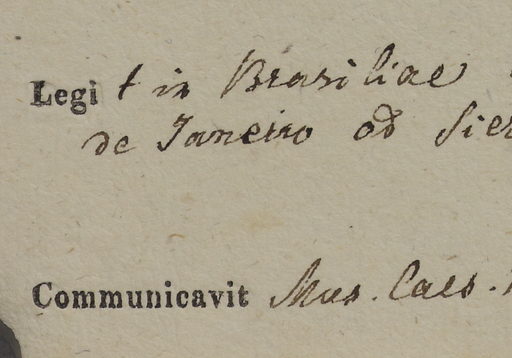 Legit in Brasiliae
de Janeiro ad Sier
Communicavit Mus. Caes.